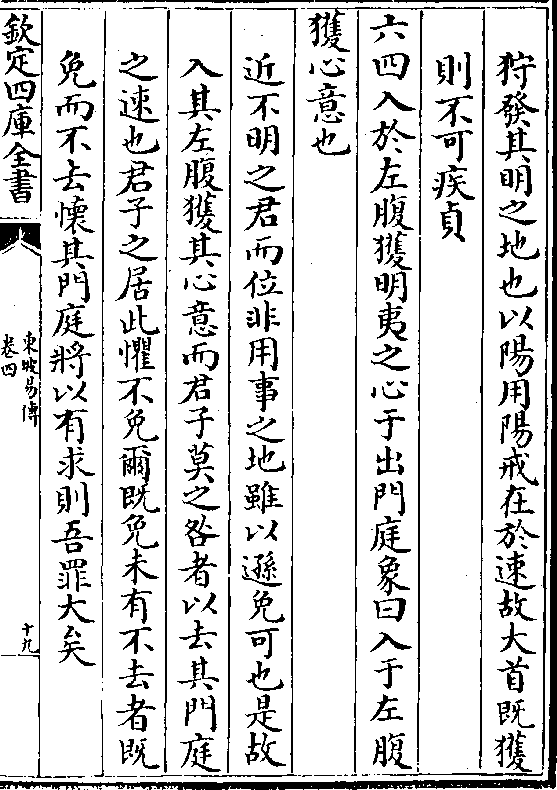 狩發其明之地也以陽用陽戒在於速故大首既獲
則不可疾貞
六四入於左腹獲明夷之心于出門庭象曰入于左腹
獲心意也
近不明之君而位非用事之地雖以遜免可也是故
入其左腹獲其心意而君子莫之咎者以去其門庭
之速也君子之居此懼不免爾既免未有不去者既
免而不去懷其門庭將以有求則吾罪大矣
欽定四庫全書
東坡易傳
卷四
十九